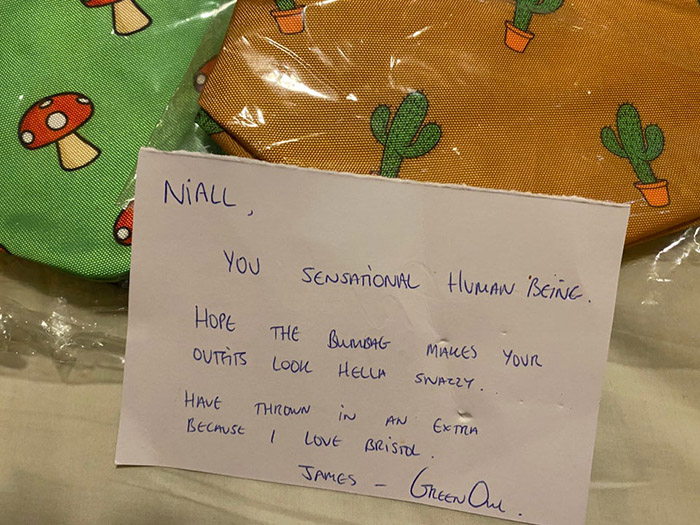 NiALL,
YOU SENSATIONAL HUMAN BEING.
HOPE THE BUMBAG MAKES YOUR
OUTFITS LOOK HELLA SNAZZY.
HAVE THROWN IN AN EXTRA
BECAUSE I LOVE BRISTOL.
JAMES – GREEN OWL.